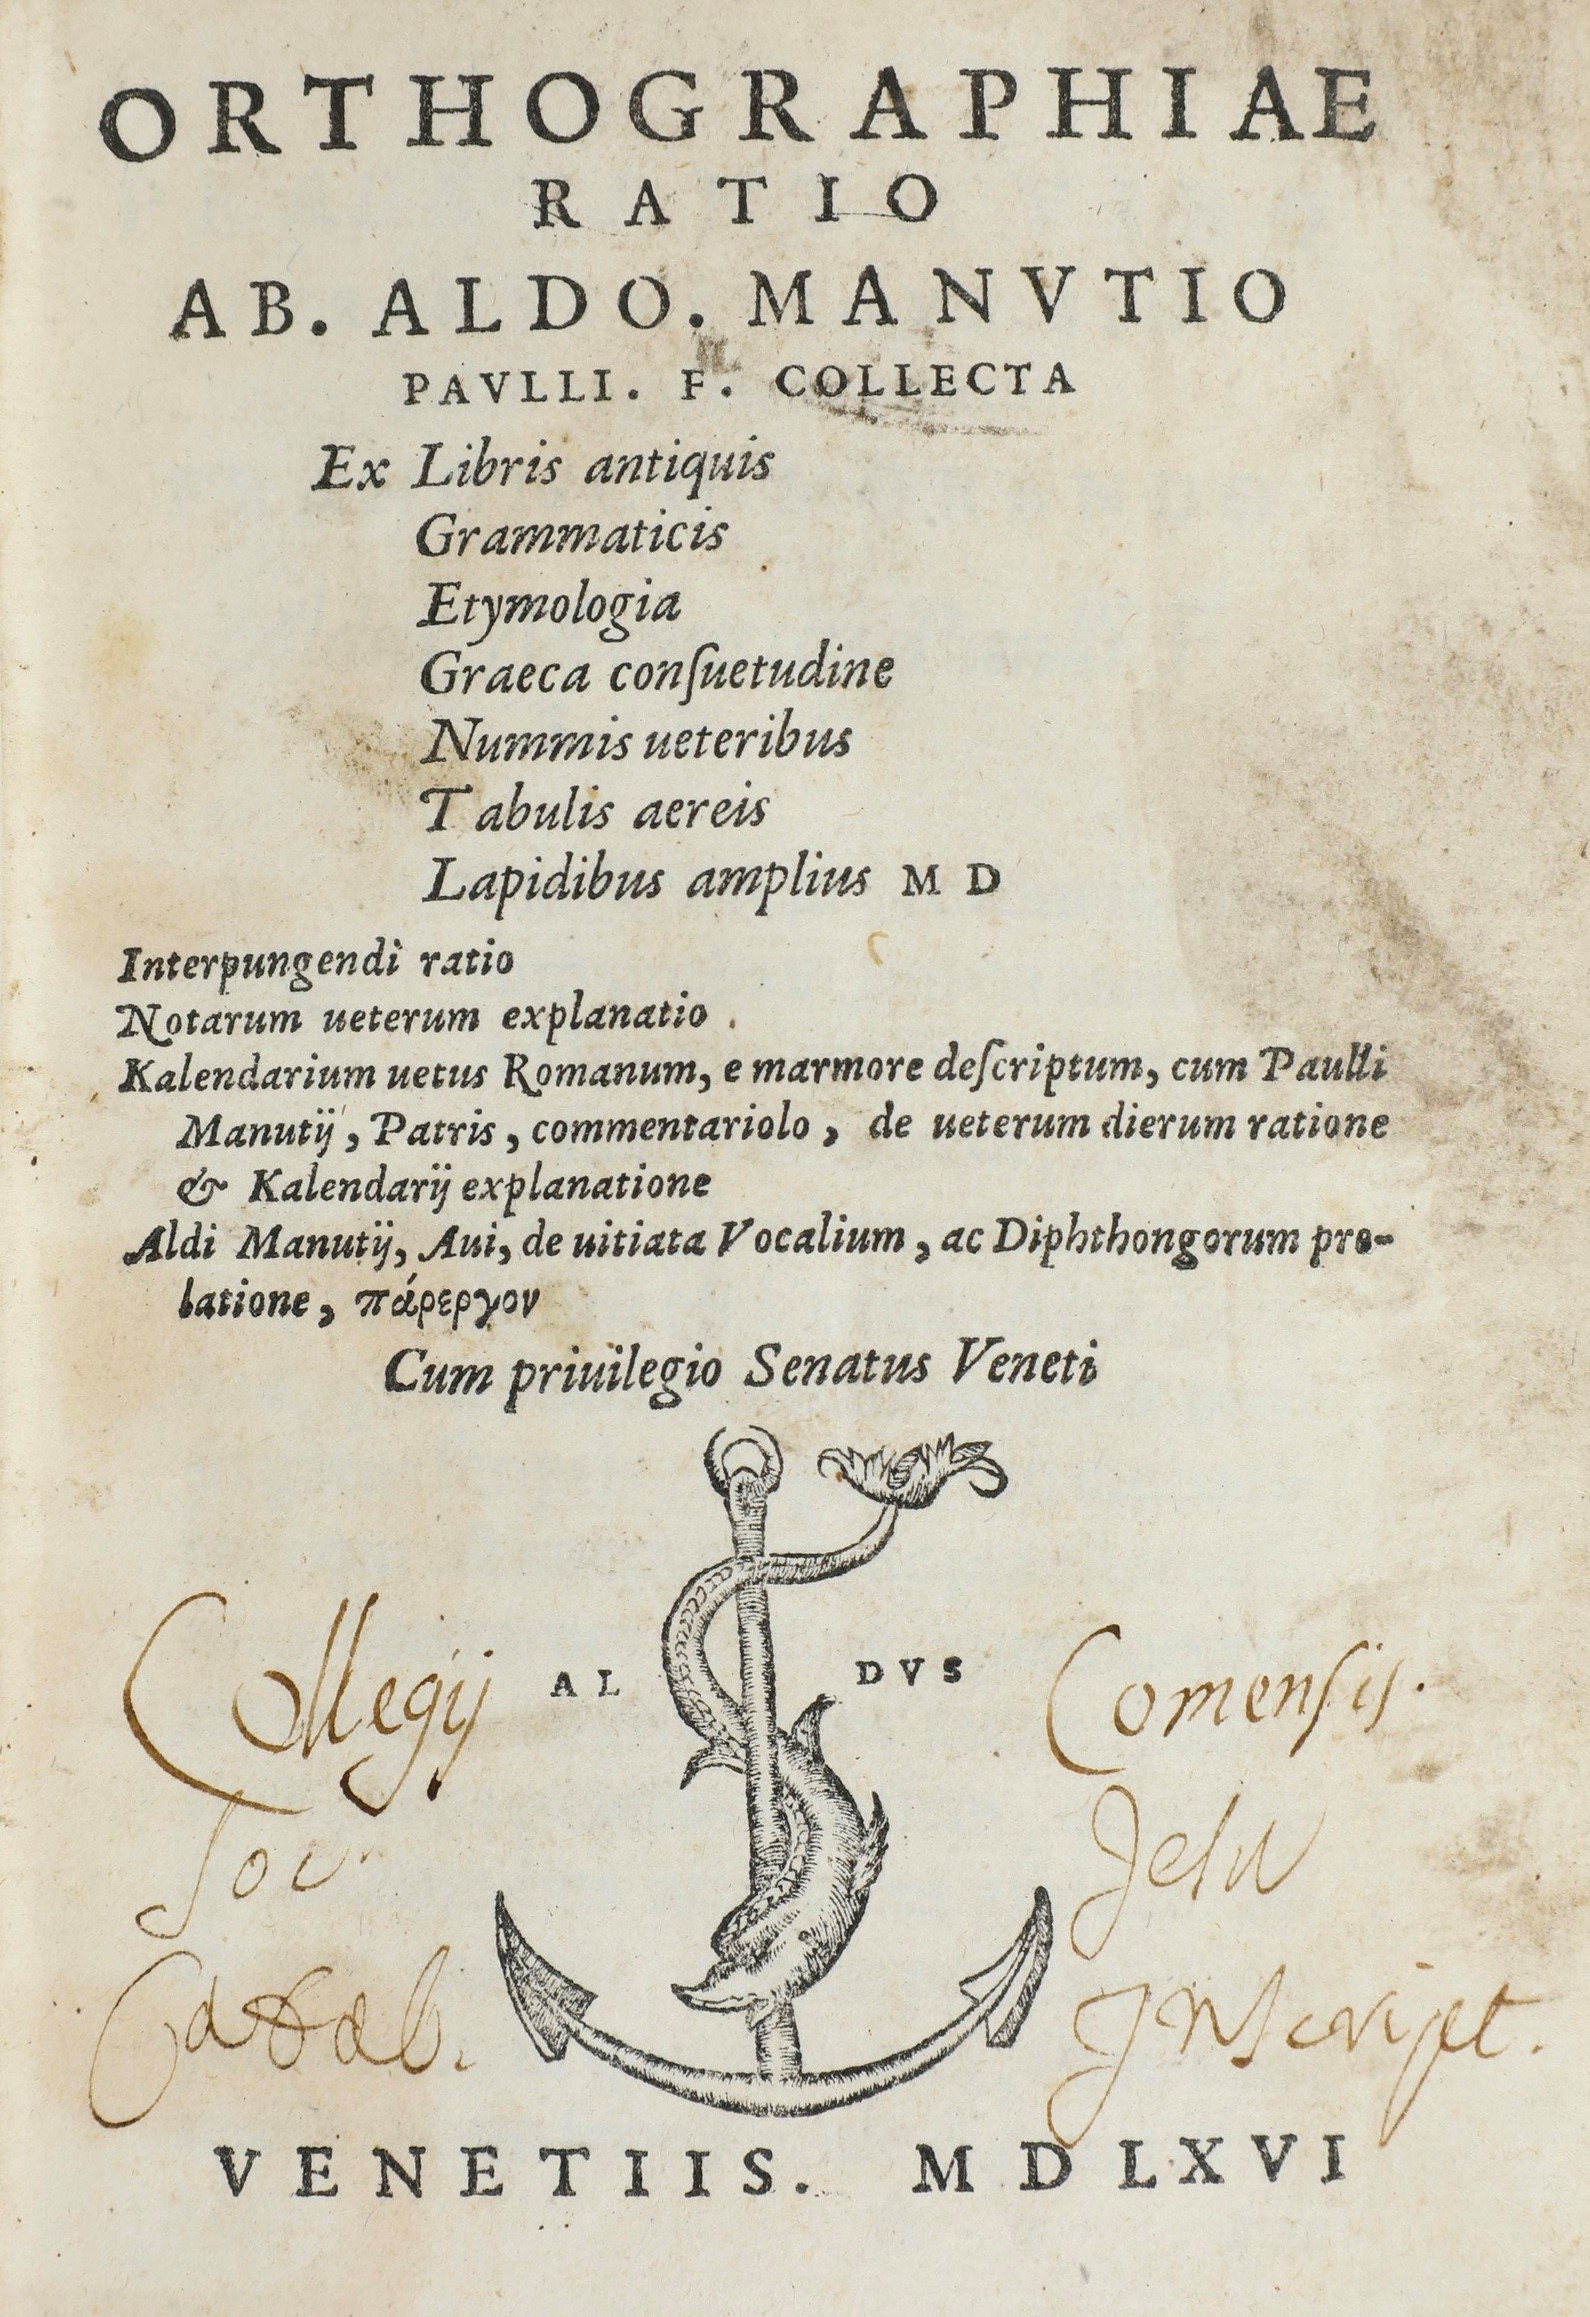 ORTHOGRAPHIAE
RATIO
AB. ALDO. MANVTIO
PAVLLI. F. COLLECTA
Ex Libris antiquis
Grammaticis
Etymologia
Graeca conſuetudine
Nummis ueteribus
Tabulis aereis
Lapidibus amplius M D
Interpungendi ratio
Notarum ueterum explanatio.
Kalendarium uetus Romanum, e marmore deſcriptum, cum Paulli
Manutij, Patris, commentariolo, de ueterum dierum ratione
& Kalendarij explanatione
Aldi Manutij, Aui, de uitiata Vocalium, ac Diphthongorum pro-
latione, πάρεργον
Cum priuilegio Senatus Veneti
AL DVS
Collegij Comenſis.
Soc. Jeſu
Catal. Inscript.
VENETIIS. M D LXVI